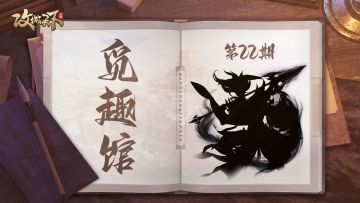 攻城掠地
觅趣馆
第22期